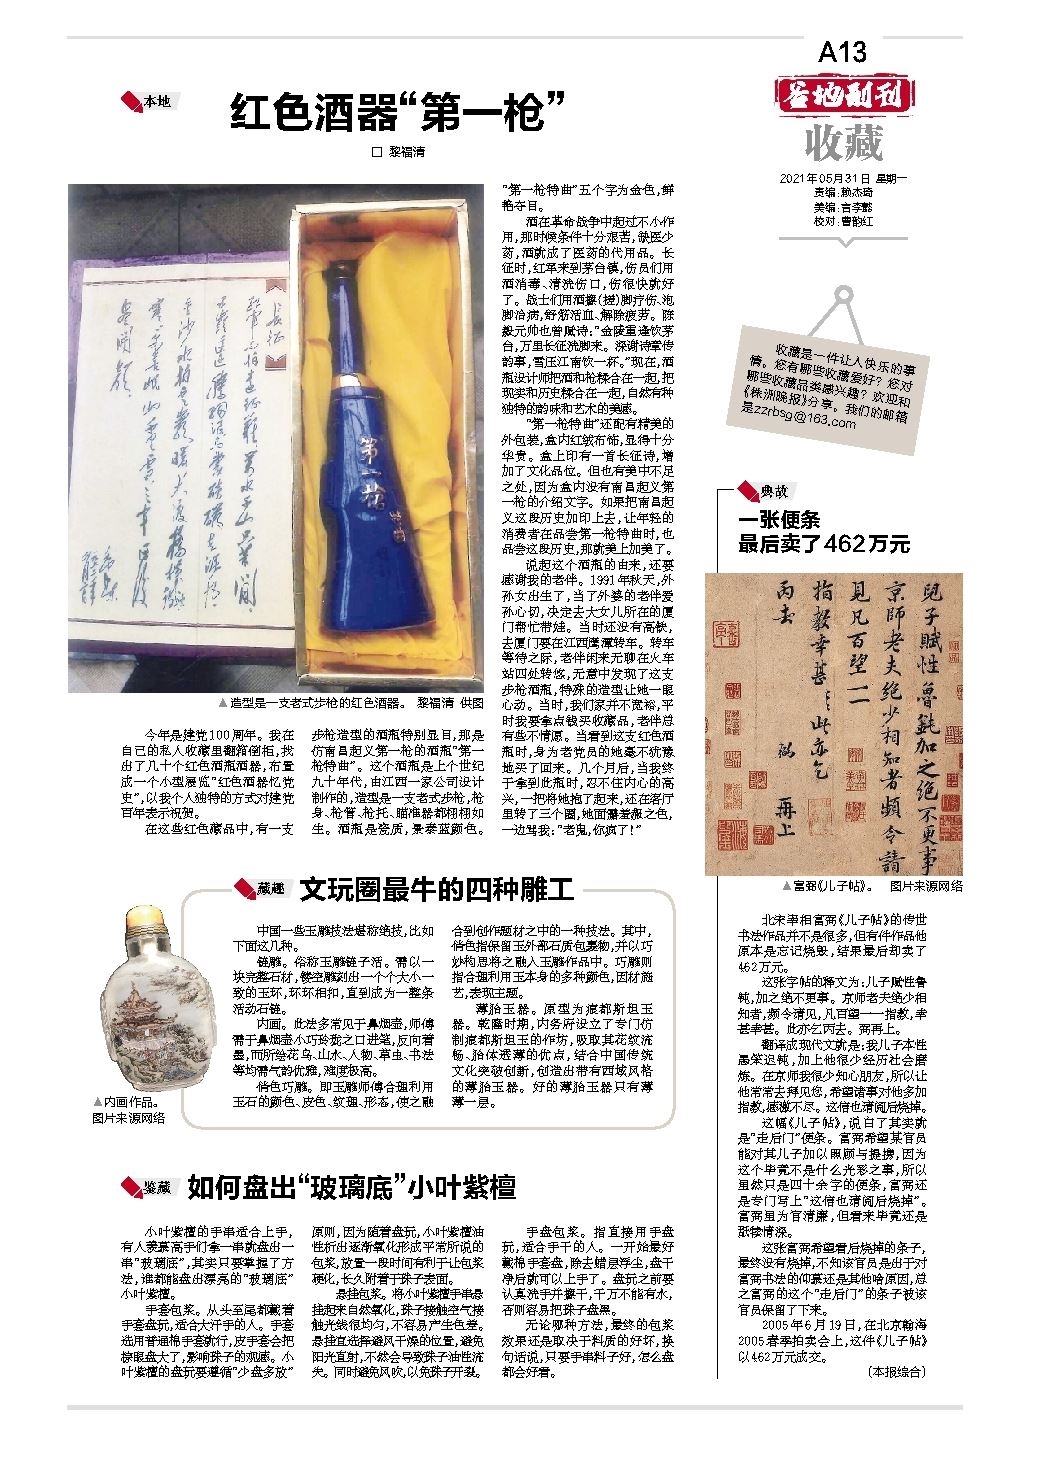 A13
茶地副刊
收藏
2021年05月31日 星期一
责编:赖杰琦
美编:言李懿
校对:曹韵红
收藏是一件让人快乐的事
情。您有哪些收藏爱好?您对
哪些收藏品类感兴趣?欢迎和
《株洲晚报》分享。我们的邮箱
是zzrbsg@163.com
本地
红色酒器“第一枪”
□ 黎福清
▲造型是一支老式步枪的红色酒器。 黎福清 供图
今年是建党100周年。我在
自己的私人收藏里翻箱倒柜,找
出了几十个红色酒瓶酒器,布置
成一个小型展览“红色酒器忆党
史”,以我个人独特的方式对建党
百年表示祝贺。
在这些红色藏品中,有一支
步枪造型的酒瓶特别显目,那是
仿南昌起义第一枪的酒瓶“第一
枪特曲”。这个酒瓶是上个世纪
九十年代,由江西一家公司设计
制作的,造型是一支老式步枪,枪
身、枪管、枪托、瞄准器都栩栩如
生。酒瓶是瓷质,景泰蓝颜色。
“第一枪特曲”五个字为金色,鲜
艳夺目。
酒在革命战争中起过不小作
用,那时候条件十分艰苦,缺医少
药,酒就成了医药的代用品。长
征时,红军来到茅台镇,伤员们用
酒消毒、清洗伤口,伤很快就好
了。战士们用酒擦(搓)脚疗伤、泡
脚治病,舒筋活血、解除疲劳。陈
毅元帅也曾赋诗:“金陵重逢饮茅
台,万里长征洗脚来。深谢诗章传
韵事,雪压江南饮一杯。”现在,酒
瓶设计师把酒和枪糅合在一起,把
现实和历史糅合在一起,自然有种
独特的韵味和艺术的美感。
“第一枪特曲”还配有精美的
外包装,盒内红绒布饰,显得十分
华贵。盒上印有一首长征诗,增
加了文化品位。但也有美中不足
之处,因为盒内没有南昌起义第
一枪的介绍文字。如果把南昌起
义这段历史加印上去,让年轻的
消费者在品尝第一枪特曲时,也
品尝这段历史,那就美上加美了。
说起这个酒瓶的由来,还要
感谢我的老伴。1991年秋天,外
孙女出生了,当了外婆的老伴爱
孙心切,决定去大女儿所在的厦
门帮忙带娃。当时还没有高铁,
去厦门要在江西鹰潭转车。转车
等待之际,老伴闲来无聊在火车
站四处转悠,无意中发现了这支
步枪酒瓶,特殊的造型让她一眼
心动。当时,我们家并不宽裕,平
时我要拿点钱买收藏品,老伴总
有些不情愿。当看到这支红色酒
瓶时,身为老党员的她毫不犹豫
地买了回来。几个月后,当我终
于拿到此瓶时,忍不住内心的高
兴,一把将她抱了起来,还在客厅
里转了三个圈,她面露羞赧之色,
一边骂我:“老鬼,你疯了!”
第一枪
特曲
长征
典故
一张便条
最后卖了462万元
儿子赋性鲁钝加之绝不更事
京师老夫绝少相知者频令请
见凡百望一一
指教幸甚幸甚此亦乞
丙去 弼 再上
▲富弼《儿子帖》。 图片来源网络
北宋宰相富弼《儿子帖》的传世
书法作品并不是很多,但有件作品他
原本是忘记烧毁,结果最后却卖了
462万元。
这张字帖的释文为:儿子赋性鲁
钝,加之绝不更事。京师老夫绝少相
知者,频令请见,凡百望一一指教,幸
甚幸甚。此亦乞丙去。弼再上。
翻译成现代文就是:我儿子本性
愚笨迟钝,加上他很少经历社会磨
炼。在京师我很少知心朋友,所以让
他常常去拜见您,希望诸事对他多加
指教,感激不尽。这信也请阅后烧掉。
这幅《儿子帖》,说白了其实就
是“走后门”便条。富弼希望某官员
能对其儿子加以照顾与提携,因为
这个毕竟不是什么光彩之事,所以
虽然只是四十余字的便条,富弼还
是专门写上“这信也请阅后烧掉”。
富弼虽为官清廉,但看来毕竟还是
舐犊情深。
这张富弼希望看后烧掉的条子,
最终没有烧掉,不知该官员是出于对
富弼书法的仰慕还是其他啥原因,总
之富弼的这个“走后门”的条子被该
官员保留了下来。
2005年6月19日,在北京翰海
2005春季拍卖会上,这件《儿子帖》
以462万元成交。
(本报综合)
藏趣
文玩圈最牛的四种雕工
▲内画作品。
图片来源网络
中国一些玉雕技法堪称绝技,比如
下面这几种。
链雕。俗称玉雕链子活。需以一
块完整石材,镂空雕刻出一个个大小一
致的玉环,环环相扣,直到成为一整条
活动石链。
内画。此法多常见于鼻烟壶,师傅
需于鼻烟壶小巧玲珑之口进笔,反向着
墨,而所绘花鸟、山水、人物、草虫、书法
等均需气韵优雅,难度极高。
俏色巧雕。即玉雕师傅合理利用
玉石的颜色、皮色、纹理、形态,使之融
合到创作题材之中的一种技法。其中,
俏色指保留玉外部石质包裹物,并以巧
妙构思将之融入玉雕作品中。巧雕则
指合理利用玉本身的多种颜色,因材施
艺,表现主题。
薄胎玉器。原型为痕都斯坦玉
器。乾隆时期,内务府设立了专门仿
制痕都斯坦玉的作坊,吸取其花纹流
畅、胎体透薄的优点,结合中国传统
文化突破创新,创造出带有西域风格
的薄胎玉器。好的薄胎玉器只有薄
薄一层。
鉴藏
如何盘出“玻璃底”小叶紫檀
小叶紫檀的手串适合上手,
有人羡慕高手们拿一串就盘出一
串“玻璃底”,其实只要掌握了方
法,谁都能盘出漂亮的“玻璃底”
小叶紫檀。
手套包浆。从头至尾都戴着
手套盘玩,适合大汗手的人。手套
选用普通棉手套就行,皮手套会把
棕眼盘大了,影响珠子的观感。小
叶紫檀的盘玩要遵循“少盘多放”
原则,因为随着盘玩,小叶紫檀油
性析出逐渐氧化形成平常所说的
包浆,放置一段时间有利于让包浆
硬化,长久附着于珠子表面。
悬挂包浆。将小叶紫檀手串悬
挂起来自然氧化,珠子接触空气接
触光线很均匀,不容易产生色差。
悬挂宜选择避风干燥的位置,避免
阳光直射,不然会导致珠子油性流
失。同时避免风吹,以免珠子开裂。
手盘包浆。指直接用手盘
玩,适合手干的人。一开始最好
戴棉手套盘,除去蜡层浮尘,盘干
净后就可以上手了。盘玩之前要
认真洗手并擦干,千万不能有水,
否则容易把珠子盘黑。
无论哪种方法,最终的包浆
效果还是取决于料质的好坏,换
句话说,只要手串料子好,怎么盘
都会好看。